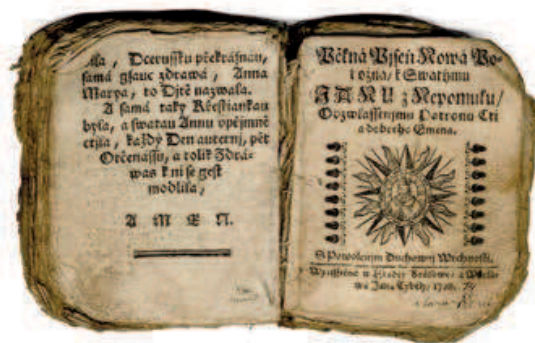 Dcerussku překrásnau,
samá gsauc zdrawá, Anna
Marya, to Djtě nazwala.
A samá taky Křestiankau
byla, a swatau Annu
každy Den auterni, pět
Otčenassu, a tolik Zdrá-
was k ni se gest
modlila,
A M E N.
Pěkná Pjseň Nowá Po-
božna, k Swatýmu
JANU z Nepomuku/
Patronu Cti
a dobreho Gmena.
S Powolenjm Duchownj Wrchnosti.
Wytisstěná w Hradcy Králowe: a Wácla-
wa Jana Tybély,